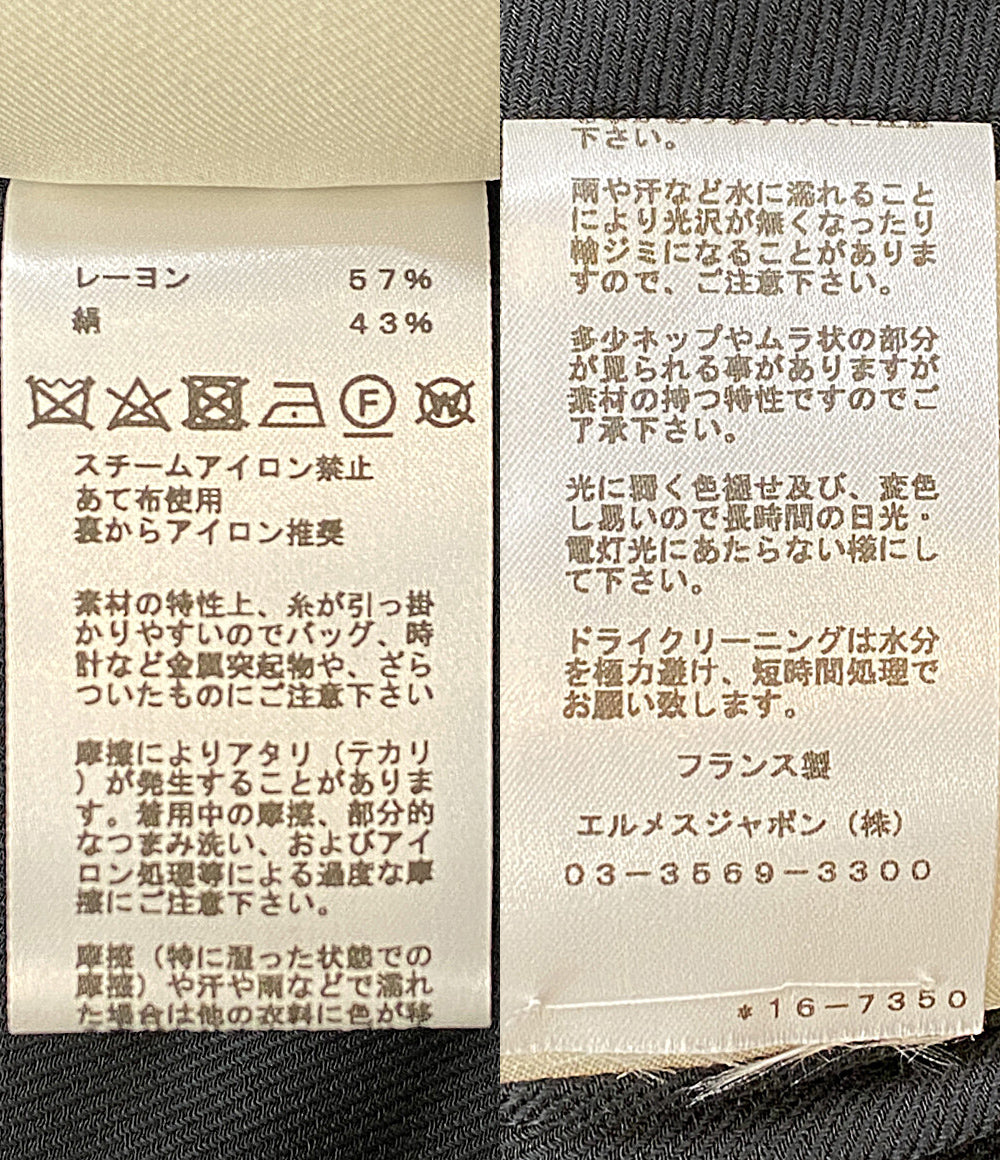 レーヨン 57%
絹 43%
F
W
スチームアイロン禁止
あて布使用
裏からアイロン推奨
素材の特性上、糸が引っ掛
かりやすいのでバッグ、時
計など金属突起物や、ざら
ついたものにご注意下さい
摩擦によりアタリ(テカリ
)が発生することがありま
す。着用中の摩擦、部分的
なつまみ洗い、およびアイ
ロン処理等による過度な摩
擦にご注意下さい。
摩擦(特に湿った状態での
摩擦)や汗や雨などで濡れ
た場合は他の衣料に色が移
下さい。
雨や汗など水に濡れること
により光沢が無くなったり
輪ジミになることがありま
すので、ご注意下さい。
多少ネップやムラ状の部分
が見られる事がありますが
素材の持つ特性ですのでご
了承下さい。
光に弱く色褪せ及び、変色
し易いので長時間の日光・
電灯光にあたらない様にし
て下さい。
ドライクリーニングは水分
を極力避け、短時間処理で
お願い致します。
フランス製
エルメスジャポン(株)
03-3569-3300
*16-7350